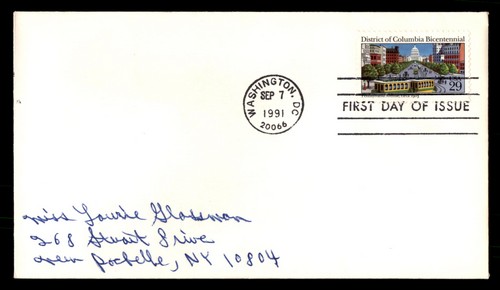 District of Columbia Bicentennial
29
WASHINGTON, DC
SEP 7
1991
20066
FIRST DAY OF ISSUE
Miss Laurie Glassman
268 Stuart Drive
New Rochelle, NY 10804